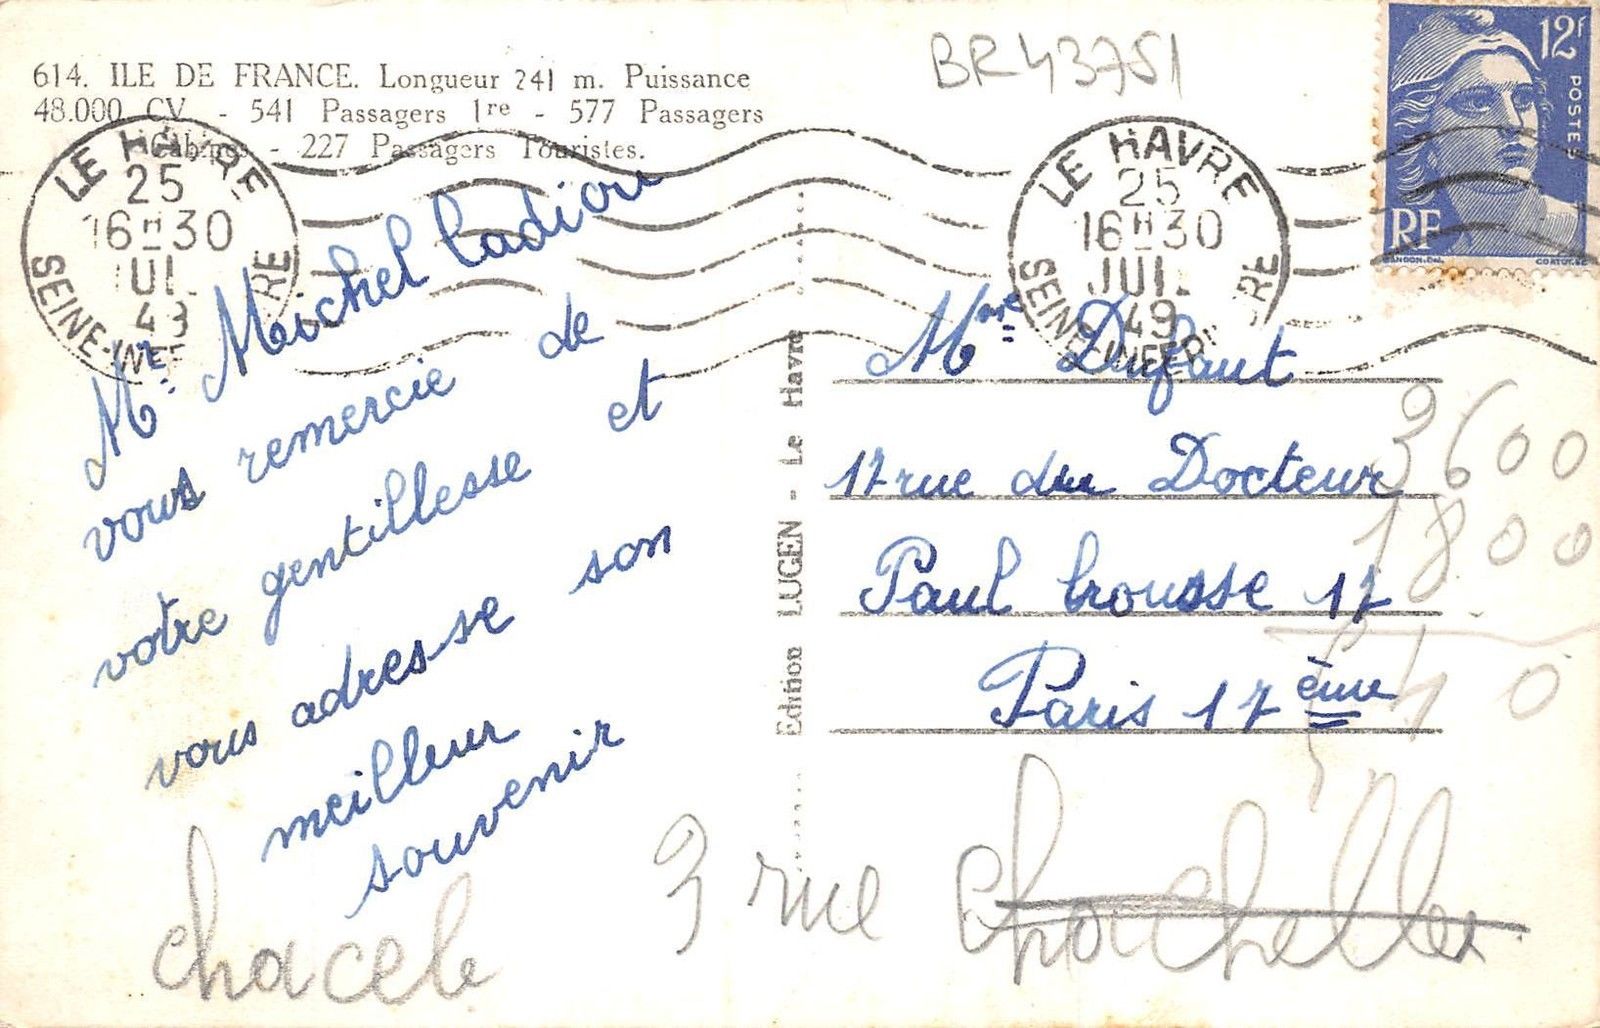 614. ILE DE FRANCE. Longueur 241 m. Puissance
48.000 CV. - 541 Passagers 1re - 577 Passagers
Cabines - 227 Passagers Touristes.
BR43751
12f
POSTES
RF
LE HAVRE
25
16H30
JUL
49
SEINE-INFERE
LE HAVRE
25
16H30
JUI.
49
SEINE-INFERE
Mr. Michel Cadiou
vous remercie de
votre gentillesse et
vous adresse son
meilleur
souvenir
Edition LUGEN - Le Havre
Mme Dufaut
17 rue du Docteur
Paul Brousse 17
Paris 17 ème
3600
1800
3 rue